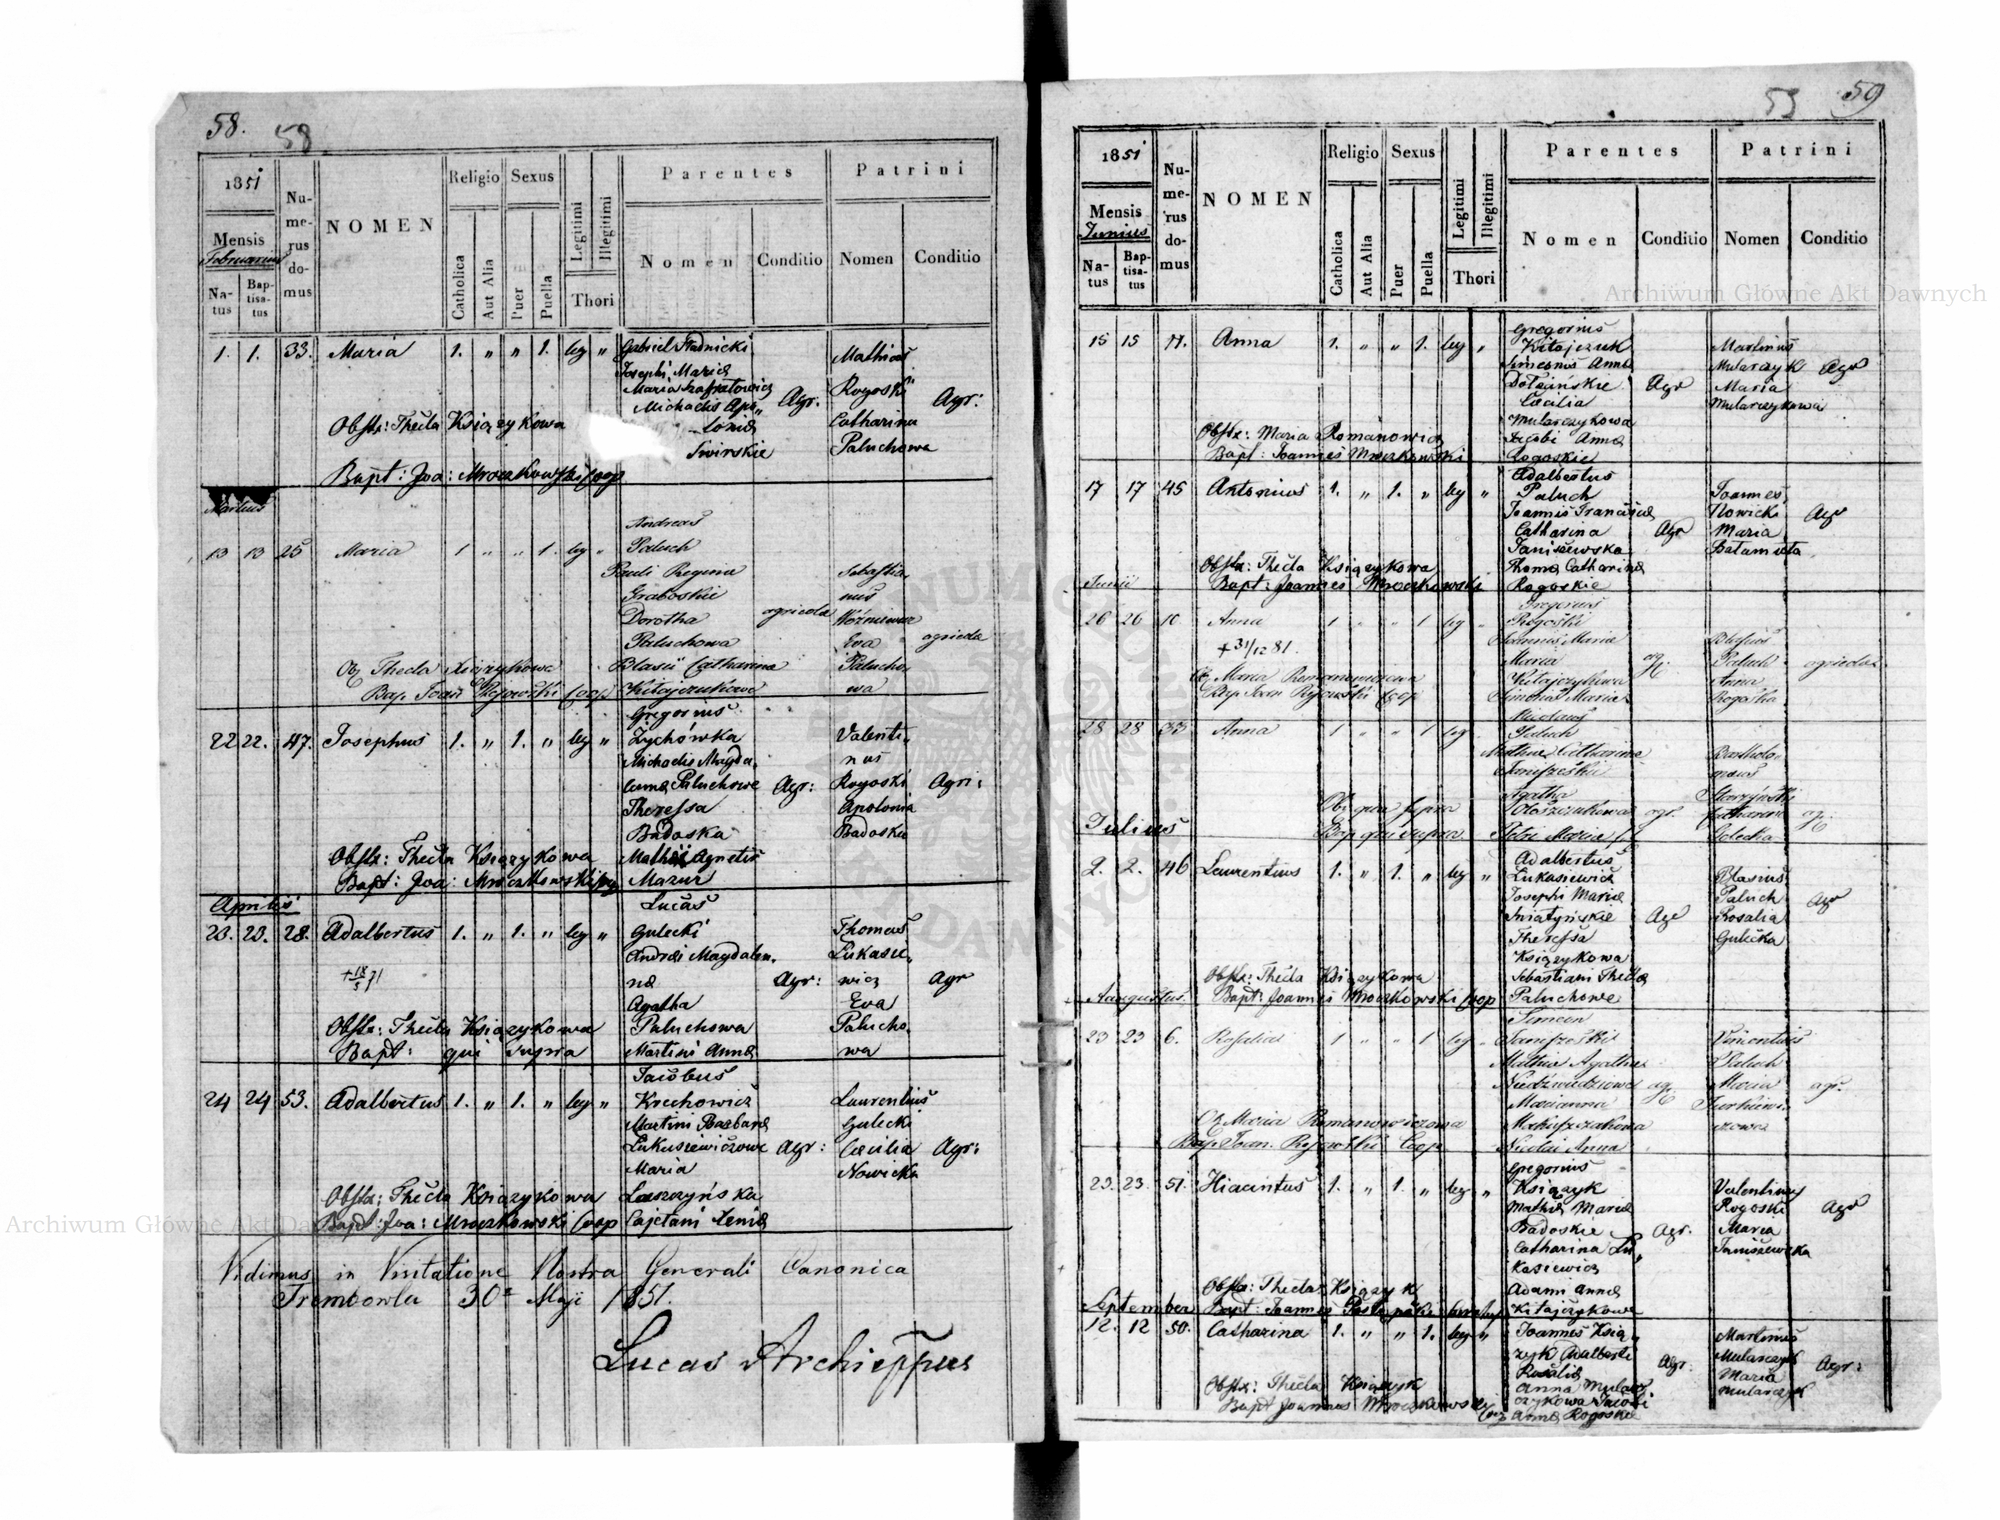 58. 58
1851
Mensis
Februarius
Natus
Baptisatus
Numerus domus
NOMEN
Religio
Catholica
Aut Alia
Sexus
Puer
Puella
Legitimi
Illegitimi
Thori
Parentes
Nomen
Conditio
Patrini
Nomen
Conditio
1. 1. 33. Maria 1. " " 1. leg "
Gabriel Stadnicki
Josephi Maria
Michaelis Apo„
lonia
Swirskie
Agr:
Mathias
Rogoski
Catharina
Paluchowa
Agr:
Obstx: Thecla Książykowa
Bapt: Joa: Mroczkowski Coop
Martius
13 13 25 Maria 1 " " 1. leg "
Andreas
Paluch
Pauli Regina
Graboskie
Dorotha
Paluchowa
Blasii Catharina
Kitajczukowe
agricola
Sebastia
nus
Woźniewicz
Eva
Palucho
wa
agricola
Ob Thecla Książykowa
Bap. Joan Ryowski Coop
22 22. 47. Josephus 1. " 1. " leg "
Gregorius
Zychówka
Michaelis Magda„
lena Paluchowe
Theressa
Badoska
Mathii Agnetis
Mazur
Agr:
Valenti„
nus
Rogoski
Apolonia
Badoska
Agri:
Obstx: Thecla Książykowa
Bapt: Joa: Mroczkowski
Aprilis
23. 23. 28. Adalbertus 1. " 1. " leg "
+18/5 71
Lucas
Gulecki
Andrei Magdalen„
na
Agatha
Paluchowa
Martini Anna
Agr:
Thomas
Lukasie„
wicz
Eva
Palucho„
wa
Agr
Obstx: Thecla Książykowa
Bapt: qui supra
24 24 53. Adalbertus 1. " 1. " leg "
Jacobus
Krechowicz
Martini Barbara
Lukasiewiczowe
Maria
Laszczyńska
Cajetani Xenia
Agr:
Laurentius
Gulecki
Cæcilia
Nowicka
Agr:
Obstx: Thecla Książykowa
Bapt: Joa: Mroczkowski Coop
Vidimus in Visitatione Nostra Generali Canonica
Trembowla 30a Maji 1851.
Lucas Archieppus
59 59
1851
Mensis
Junius
Natus
Baptisatus
Numerus domus
NOMEN
Religio
Catholica
Aut Alia
Sexus
Puer
Puella
Legitimi
Illegitimi
Thori
Parentes
Nomen
Conditio
Patrini
Nomen
Conditio
15 15 11. Anna 1. " " 1. leg "
Gregorius
Kitajczuk
Simeonis Anna
Dolzińskie
Cæcilia
Mularzykowa
Jacobi Anna
Rogoskie
Agr
Martinus
Mularczyk
Maria
Mularczykowa
Agr
Obstx: Maria Romanowicz
Bapt: Joannes Mroczkowski
17 17 45 Antonius 1. " 1. " leg "
Adalbertus
Paluch
Joannis Francisca
Catharina
Janiszewska
Thoma Catharina
Rogoskie
Agr
Joannes
Nowicki
Maria
Batamuta
Agr
Obstx: Thecla Książykowa
Bapt: Joannes Mroczkowski
Junii
26 26 10 Anna 1 " " 1 leg "
+31/12 81.
Gregorius
Rogoski
Joannis Maria
Maria
Kitajczykowa
Simonis Maria
agr.
Blasius
Paluch
Anna
Rogoska
agricola
Ob Maria Romanowiczowa
Bap Joan Ryowski Coop
28 28 33 Anna 1 " " 1 leg
Nicolaus
Paluch
Mathia Catharina
Janiszeskie
Agatha
agr.
Bartholo„
meus
Storzyński
Catharina
Golecka
agr.
Ob: quæ supra
Bap qui supra
Julius
2. 2. 46 Laurentius 1. " 1. " leg "
Adalbertus
Lukasiewicz
Josephi Maria
Sniatyńskie
Theressa
Książykowa
Sebastiani Thecla
Paluchowe
Agr
Blasius
Paluch
Rosalia
Gulecka
Agr
Obstx: Thecla Książykowa
Bapt: Joannes Mroczkowski Coop
Aaugustus.
23 23 6. Rosalia 1 " " 1 leg "
Simeon
Janiszeski
Mathia Agatha
Niedzwiedziowe
Marianna
agr.
Vincentius
Paluch
Maria
agr.
Ob Maria Romanowiczowa
Bap Joan. Ryowski Coop
23. 23. 51. Hiacintus 1. " 1. " leg "
Gregorius
Książyk
Mathia Maria
Badoskie
Catharina Lu„
kasiewicz
Adami Anna
Kitajczykowe
Agr.
Valentinus
Rogoski
Maria
Janiszewska
Agr
Obstx: Thecla Książyk
September
12. 12 50. Catharina 1. " " 1. leg "
Joannes Ksią„
zyk Adalberti
Rosalia
Anna Mular„
czykowa Jacobi
Anna Rogoskie
Agr.
Martinus
Mularczyk
Maria
Mularczyk
Agr:
Obstx: Thecla Książyk
Bapt Joannes Mroczkowski Coop
Archiwum Główne Akt Dawnych
Archiwum Główne Akt Dawnych